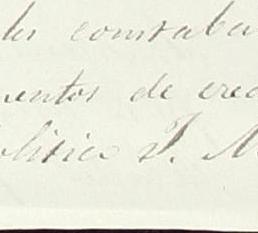 les constaba
mentos de cred
olitico J. M